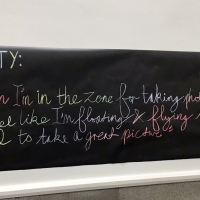 TY:
I'm in the zone for taking
like I'm floating & flying
to take a great picture